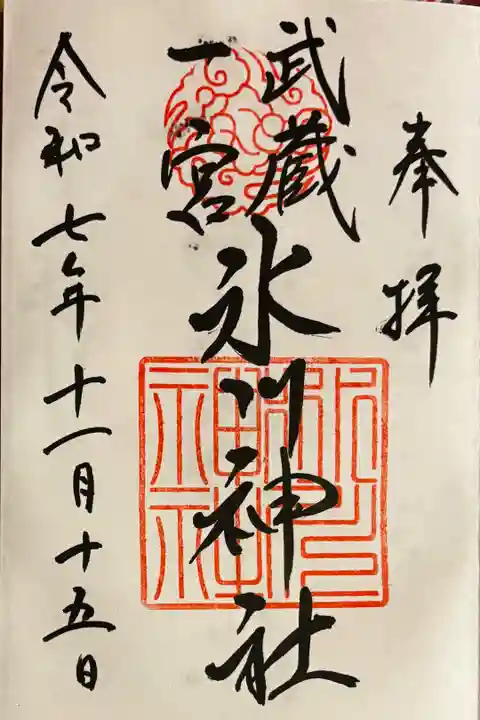 奉拝
武蔵
一宮
氷川神社
令和七年十一月十五日
氷川神社